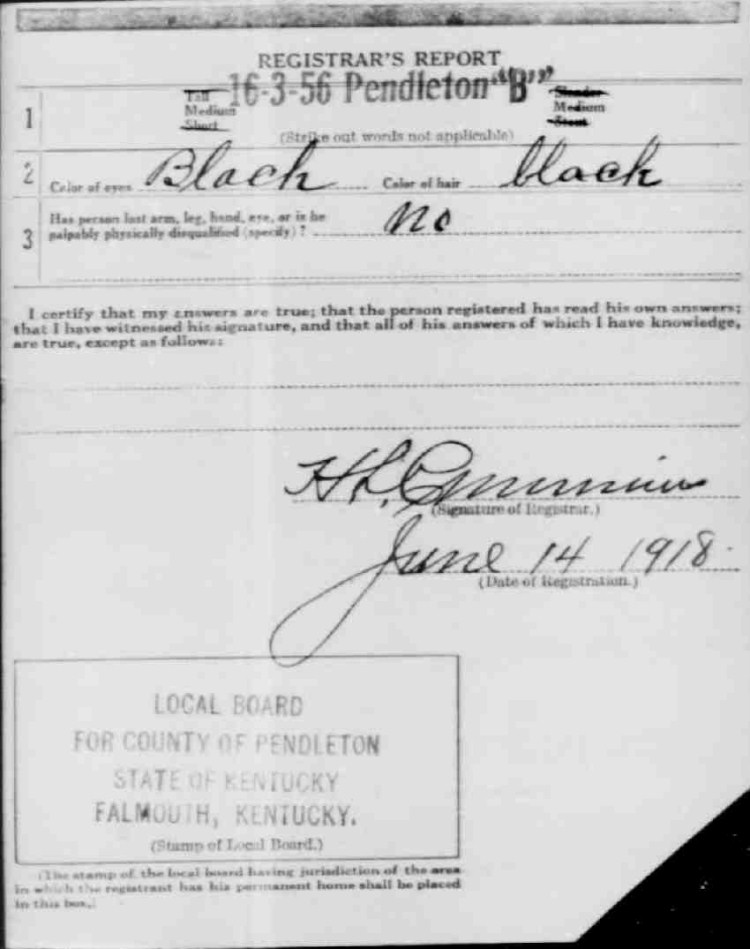 REGISTRAR'S REPORT
16-3-56 Pendleton "B"
1
Tall
Medium
Short
Slender
Medium
Stout
(Strike out words not applicable)
2 Color of eyes Black Color of hair black
3
Has person lost arm, leg, hand, eye, or is he
palpably physically disqualified (specify)? No
I certify that my answers are true; that the person registered has read his own answers;
that I have witnessed his signature, and that all of his answers of which I have knowledge,
are true, except as follows:
H.L.
(Signature of Registrar.)
June 14 1918.
(Date of Registration.)
LOCAL BOARD
FOR COUNTY OF PENDLETON
STATE OF KENTUCKY
FALMOUTH, KENTUCKY.
(Stamp of Local Board.)
(The stamp of the local board having jurisdiction of the area
in which the registrant has his permanent home shall be placed
in this box.)